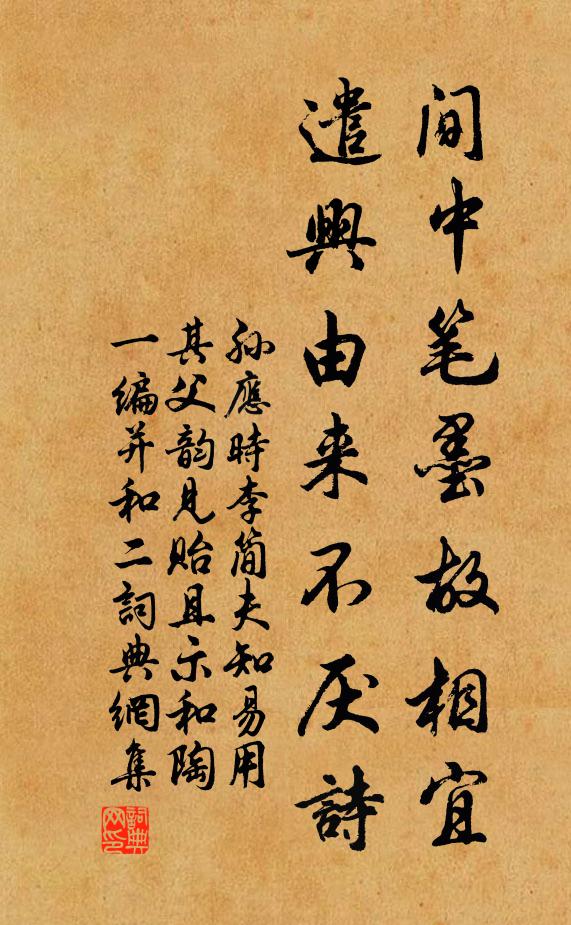 间中笔墨故相宜
遣興由来不厌詩
孙應時李简夫知易用
其父韵見贻且示和陶
一编并和二詞典網集
詞典网印